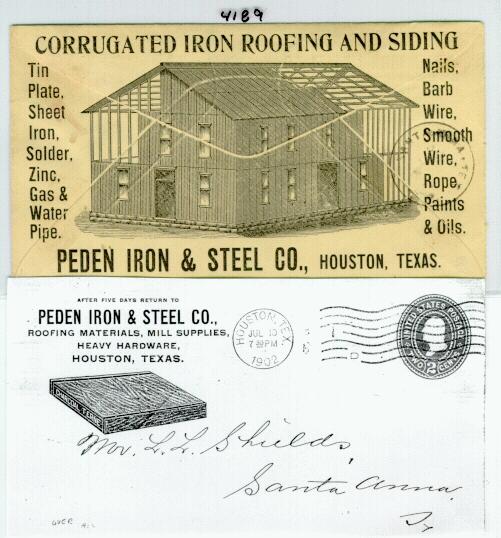 4189
CORRUGATED IRON ROOFING AND SIDING
Tin
Plate,
Sheet
Iron,
Solder,
Zinc,
Gas &
Water
Pipe.
Nails,
Barb
Wire,
Smooth
Wire,
Rope,
Paints
& Oils.
PEDEN IRON & STEEL CO., HOUSTON, TEXAS.
AFTER FIVE DAYS RETURN TO
PEDEN IRON & STEEL CO.,
ROOFING MATERIALS, MILL SUPPLIES,
HEAVY HARDWARE,
HOUSTON, TEXAS.
HOUSTON, TEX.
JUL 10
7 PM
1902
D
UNITED STATES POSTAGE
2
Mr. L. L. Shields,
Santa Anna
Tx
OVER